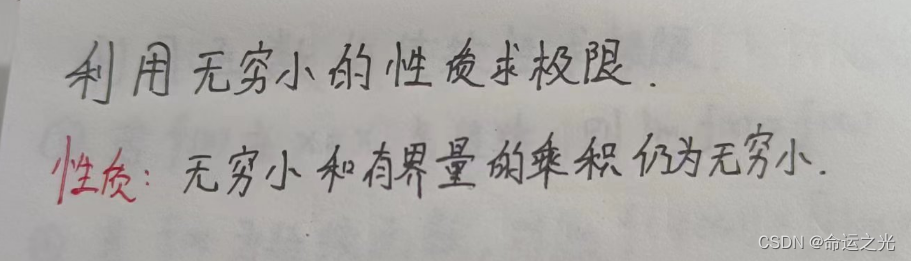 利用无穷小的性质求极限.
性质: 无穷小和有界量的乘积仍为无穷小.
CSDN @命运之光